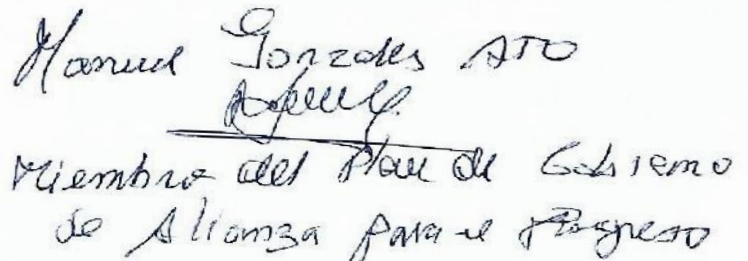 Manuel Gonzales ATO
Miembro del Plan de Gobierno
de Alianza para el Progreso